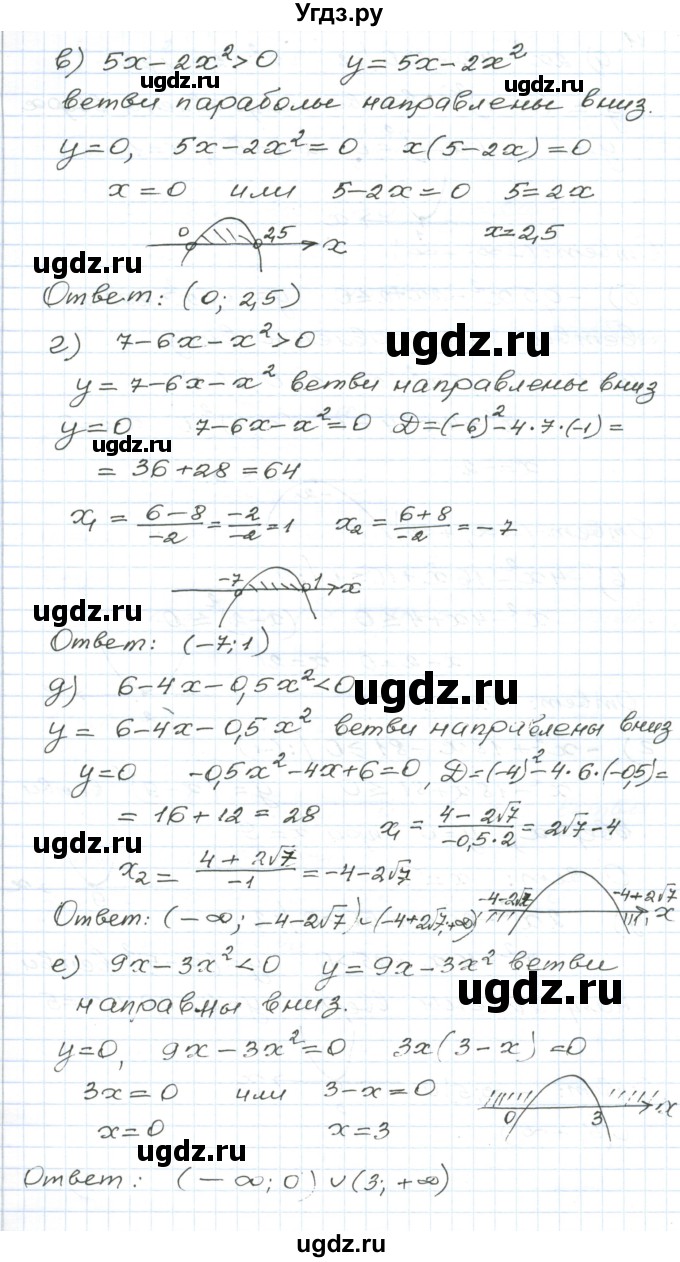 Угдз.ру
в) 5x-2x²>0 y=5x-2x²
ugdz.ru ugdz.ru
ветви параболы направлены вниз.
y=0, 5x-2x²=0 x(5-2x)=0
x=0 или 5-2x=0 5=2x
0 2,5 x x=2,5
ugdz.ru
Ответ: (0; 2,5)
г) 7-6x-x²>0
ugdz.ru
y=7-6x-x² ветви направлены вниз
y=0 7-6x-x²=0 Д=(-6)²-4·7·(-1)=
ugdz.ru
=36+28=64
x₁=(6-8)/(-2)=(-2)/(-2)=1 x₂=(6+8)/(-2)=-7
-7 1 x
ugdz.ru
Ответ: (-7;1)
д) 6-4x-0,5x²<0
ugdz.ru
y=6-4x-0,5x² ветви направлены вниз
y=0 -0,5x²-4x+6=0, Д=(-4)²-4·6·(-0,5)=
=16+12=28 x₁=(4-2√7)/(-0,5·2)=2√7-4
ugdz.ru
x₂=(4+2√7)/(-1)=-4-2√7
-4-2√7 -4+2√7 x
Ответ: (-∞; -4-2√7)∪(-4+2√7;+∞)
е) 9x-3x²<0 y=9x-3x² ветви
ugdz.ru
направлны вниз.
y=0, 9x-3x²=0 3x(3-x)=0
3x=0 или 3-x=0
0 3 x
x=0 x=3
ugdz.ru
Ответ: (-∞;0)∪(3;+∞)
ugdz.ru